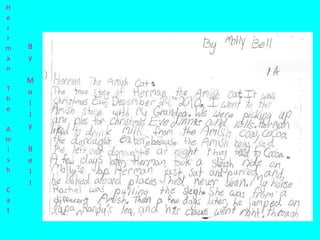 Herrman The Amish Cat
By Molly Bell
By Molly Bell
1A
Herman The Amish Cat
The true story of Herman the Amish Cat. It was
Christmas Eve, December 24, 2010. I went to the
Amish Store with my Grandpa. We were picking up
pies for Christmas Eve Dinner Herman
liked to drink milk from the Amish Cow, Cocoa
the donkey at eaten because the Amish boys said
the at night they to Cocoa.
A few days later Herman took a sleigh ride on
Molly's lap. Herman just sat and purried, and
he looked aroued places he'd never seen. My horse
Rachel was pulling the sleigh. She was from a
different Amish. Then a few days later he jumped on
leg, and his claws went right through